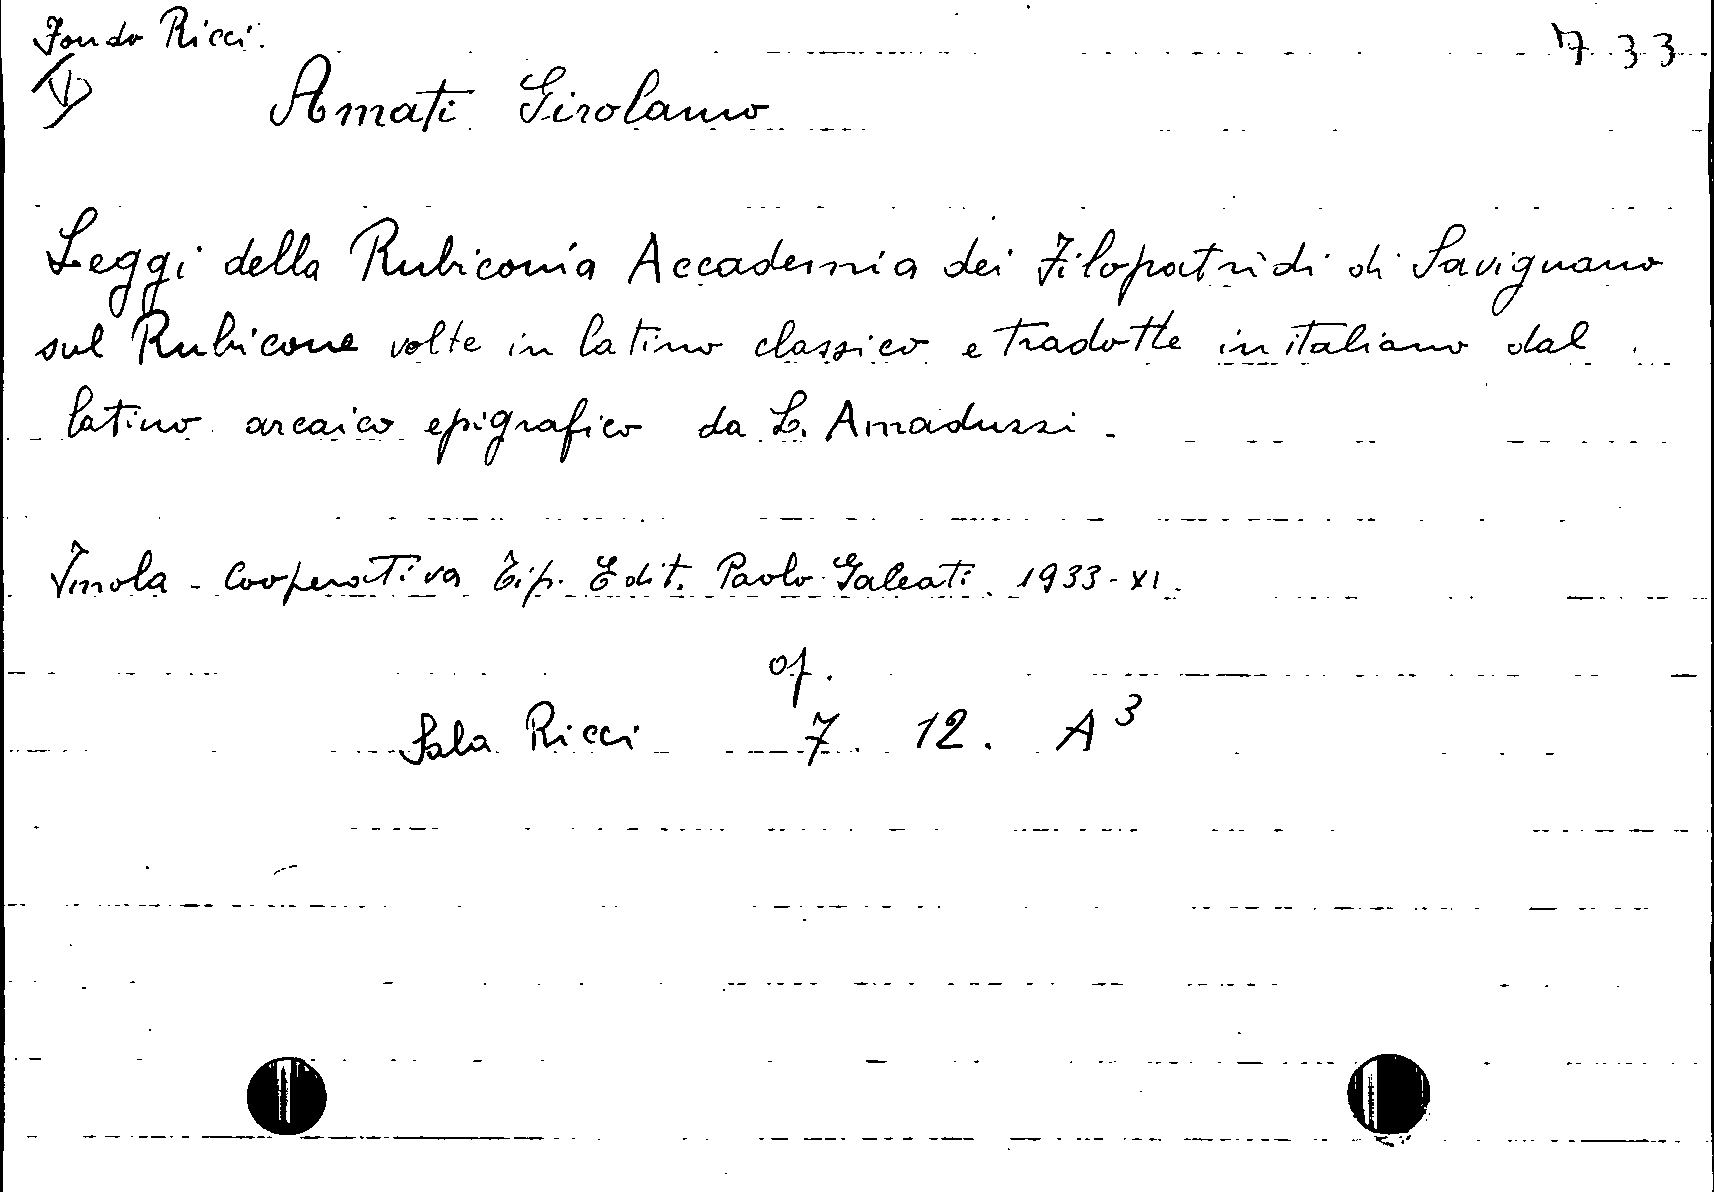 Fondo Ricci.
7 33
Amati Girolamo
Leggi della Rubiconia Accademia dei Filopatridi di Savignano
sul Rubicone volte in latino classico e tradotte in italiano dal
latino arcaico epigrafico da L. Amaduzzi.
Imola - Cooperativa Tip. Edit. Paolo Galeati. 1933-XI.
op.
Sala Ricci 7 12. A³